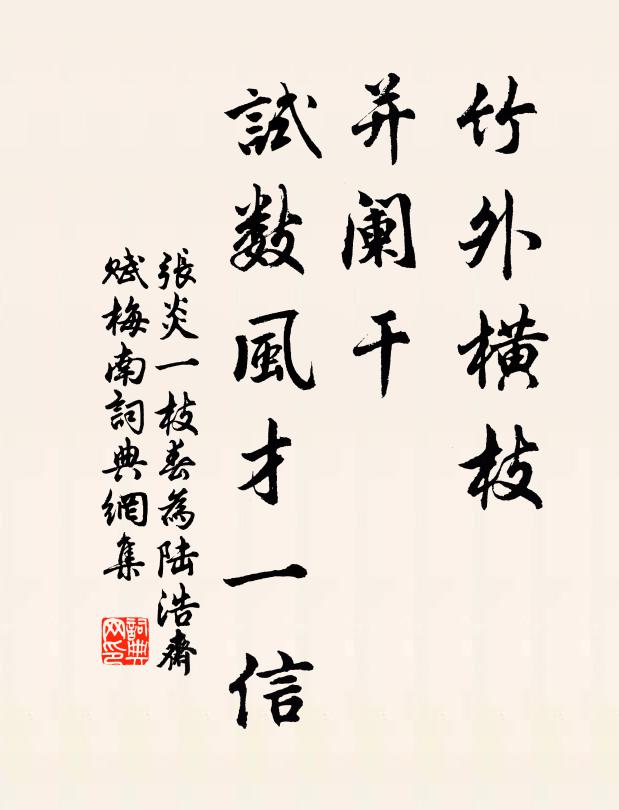 竹外橫枝
并阑干
試数風才一信
張炎一枝春為陆浩齋
赋梅南詞典網集
詞典网印